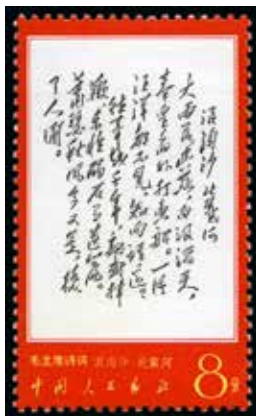 浪淘沙 北戴河
大雨落幽燕，白浪滔天，
秦皇岛外打鱼船。一片
汪洋都不见，知向谁边？
往事越千年，魏武挥
鞭，东临碣石有遗篇。
萧瑟秋风今又是，换
了人间。
毛主席诗词 浪淘沙·北戴河
中国人民邮政 8分